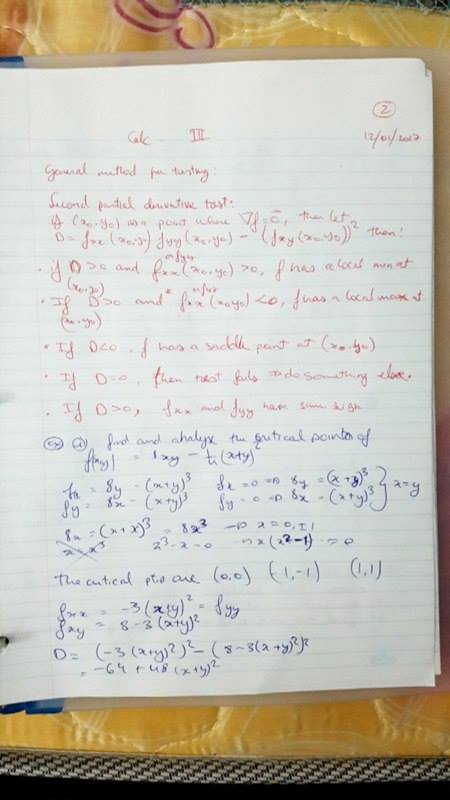 2
Calc III 12/01/2017
General method for testing:
Second partial derivative test:
if (x₀,y₀) is a point where ∇f = 0, then let
D = fxx (x₀,y₀) fyy (x₀,y₀) - (fxy (x₀,y₀))² then:
• if D>0 and fxx (x₀,y₀) >0, f has a local min at
(x₀,y₀)
• If D>0 and fxx (x₀,y₀) <0, f has a local max at
(x₀,y₀)
• If D<0 f has a saddle point at (x₀,y₀)
• If D=0, then test fails ⇒ do something else.
• If D>0, fxx and fyy have same sign
Ex find and analyze the critical points of
f(x,y) = 8xy - ¼(x+y)⁴
fx = 8y - (x+y)³ fx = 0 ⇒ 8y = (x+y)³
fy = 8x - (x+y)³ fy = 0 ⇒ 8x = (x+y)³ } x=y
8x = (x+x)³ = 8x³ → x = 0, ±1
x³ - x = 0 → x(x²-1) = 0
The critical pts are (0,0) (-1,-1) (1,1)
fxx = -3(x+y)² = fyy
fxy = 8-3(x+y)²
D = (-3(x+y)²)² - (8-3(x+y)²)²
= -64 + 48(x+y)²